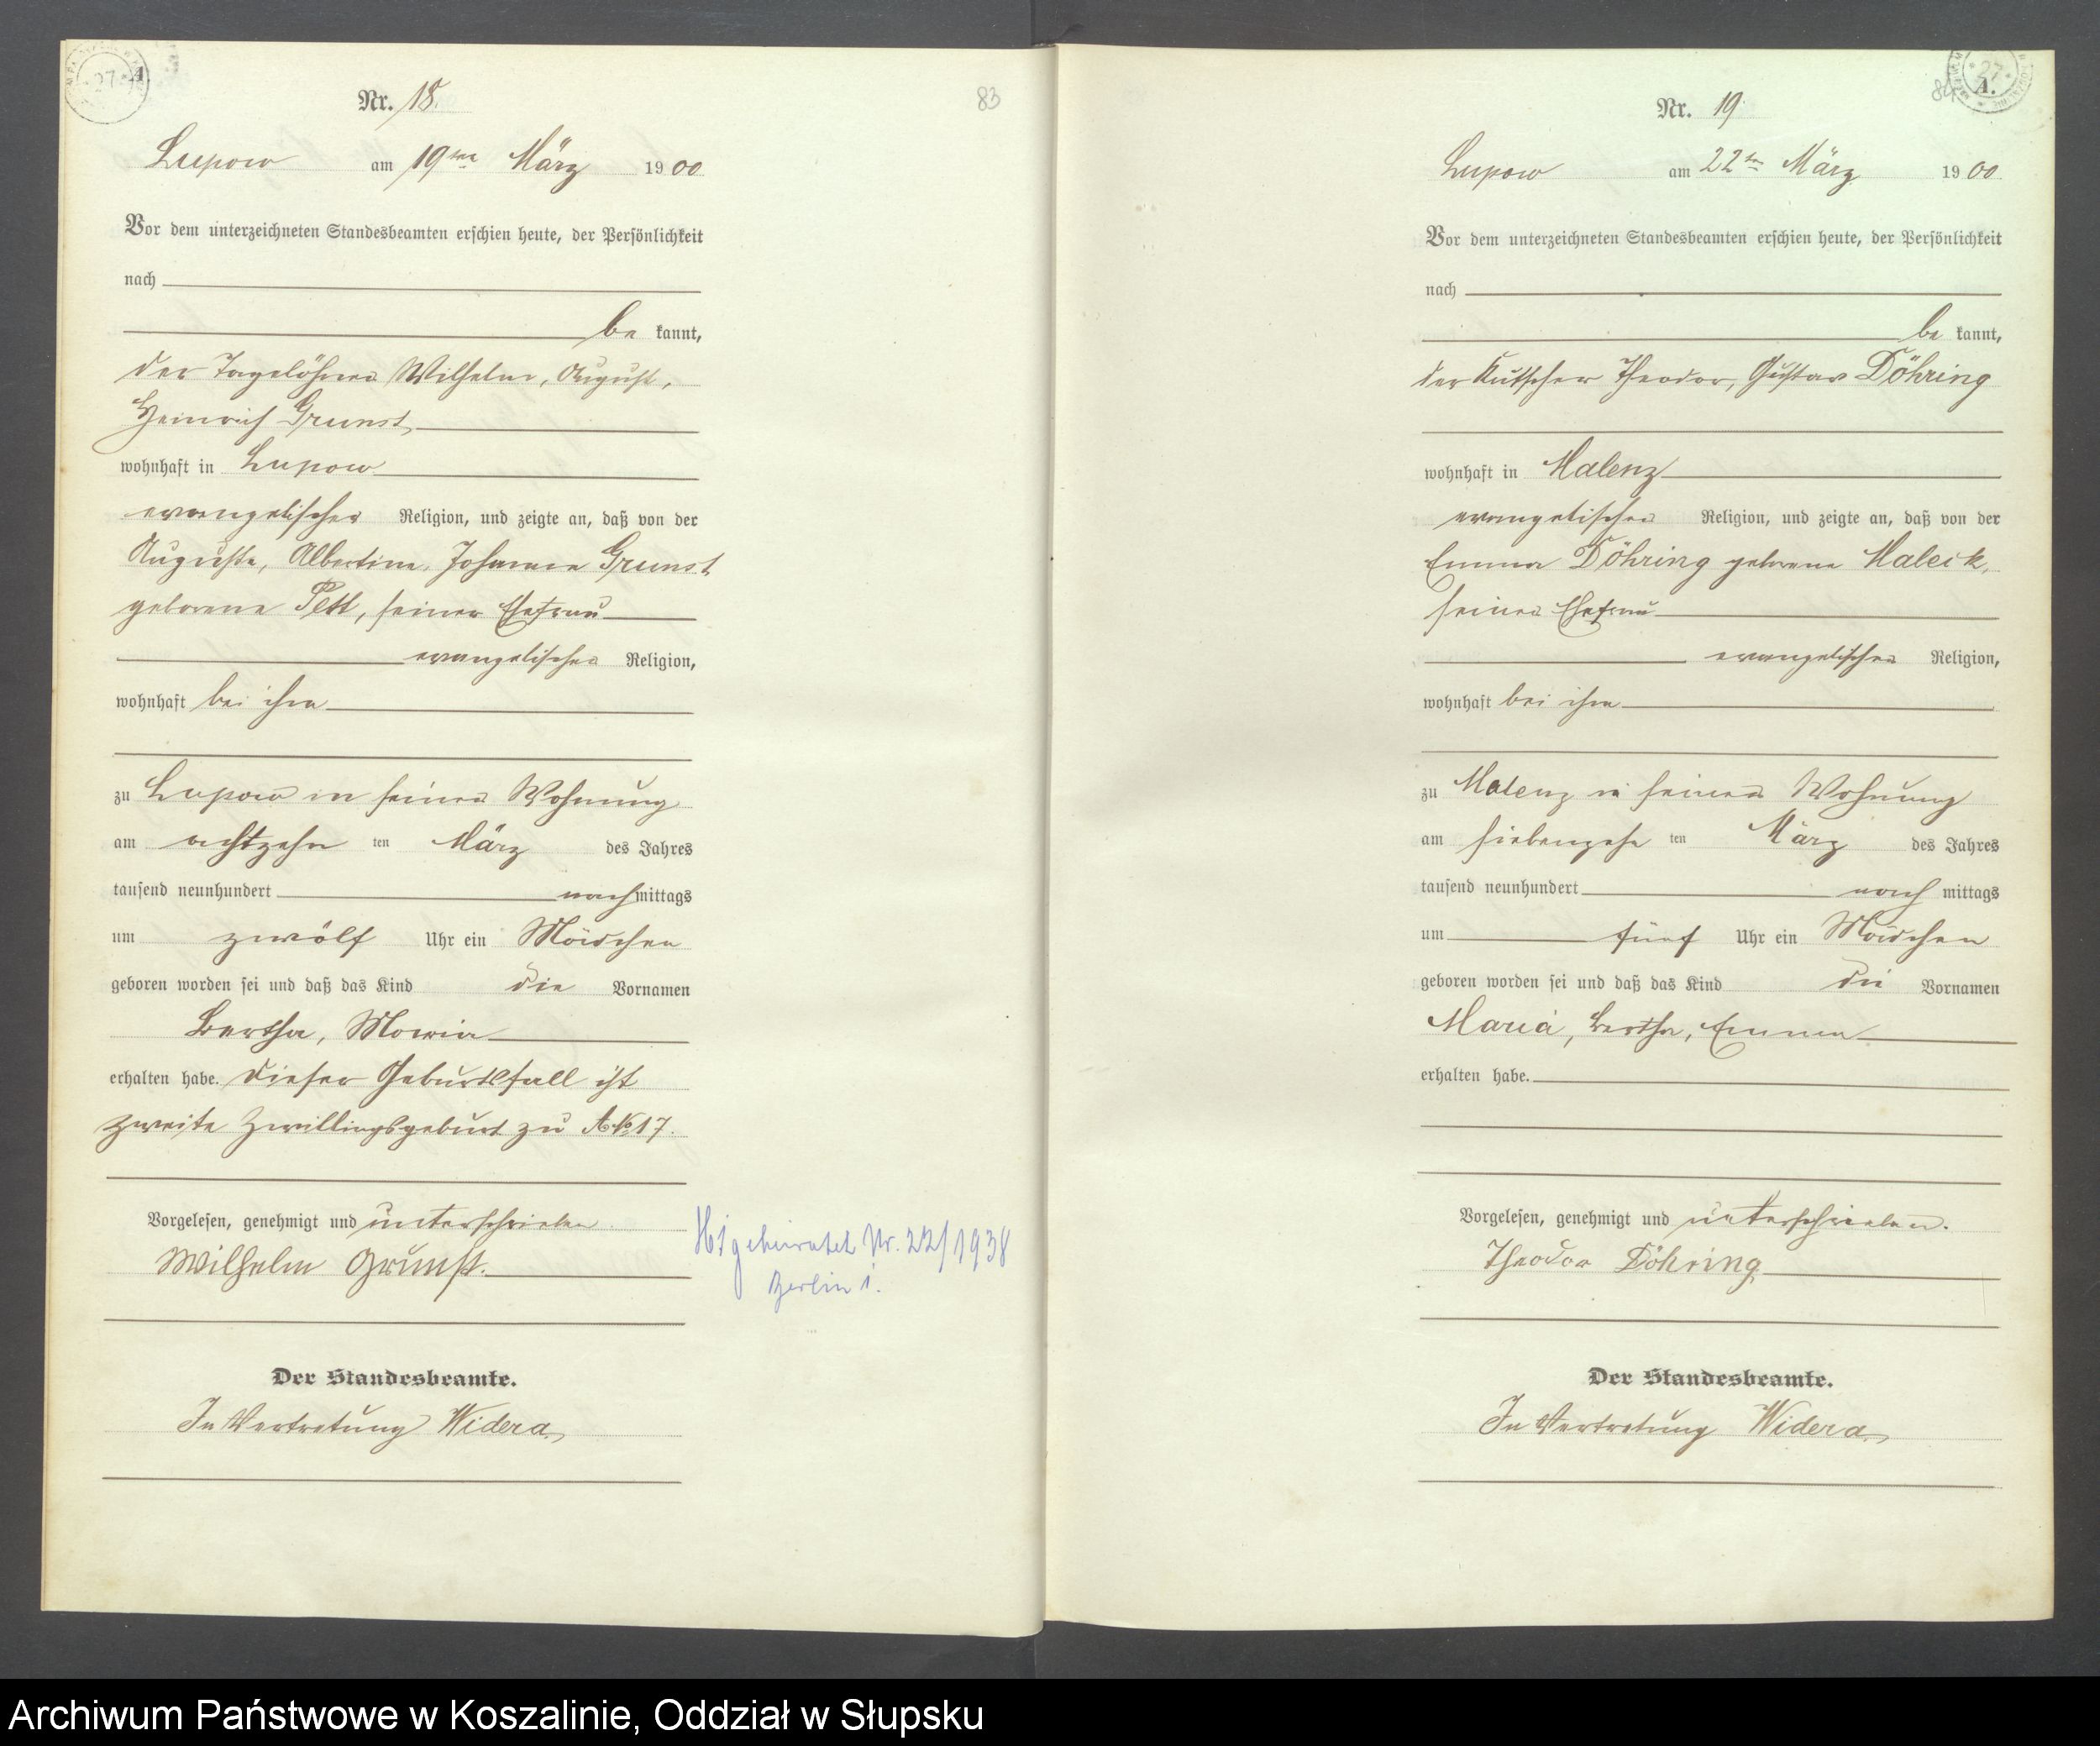 A.
Nr. 18.
83
Lupow am 19ten März 1900
Vor dem unterzeichneten Standesbeamten erschien heute, der Persönlichkeit
nach
be kannt,
der Tagelöhner Wilhelm, August,
Heinrich Grunst,
wohnhaft in Lupow
evangelischer Religion, und zeigte an, daß von der
Auguste, Albertine, Johanne Grunst
geborene Pett, seiner Ehefrau
evangelischer Religion,
wohnhaft bei ihm
zu Lupow in seiner Wohnung
am achtzehn ten März des Jahres
tausend neunhundert nachmittags
um zwölf Uhr ein Mädchen
geboren worden sei und daß das Kind die Vornamen
Bertha, Maria
erhalten habe. Dieser Geburtsfall ist
zweite Zwillingsgeburt zu A. No 17.
Vorgelesen, genehmigt und unterschrieben.
Wilhelm Grunst.
geheiratet Nr. 22/1938
Berlin 1.
Der Standesbeamte.
In Vertretung Widera
84
27
A.
Nr. 19
Lupow am 22ten März 1900
Vor dem unterzeichneten Standesbeamten erschien heute, der Persönlichkeit
nach
be kannt,
der Kutscher Theodor, Gustav Döhring
wohnhaft in Malenz
evangelischer Religion, und zeigte an, daß von der
Emma Döhring geborene Maleik,
seiner Ehefrau
evangelischer Religion,
wohnhaft bei ihm
zu Malenz in seiner Wohnung
am siebenzehn ten März des Jahres
tausend neunhundert nach mittags
um fünf Uhr ein Mädchen
geboren worden sei und daß das Kind die Vornamen
Maria, Bertha, Emma
erhalten habe.
Vorgelesen, genehmigt und unterschrieben.
Theodor Döhring
Der Standesbeamte.
In Vertretung Widera
Archiwum Państwowe w Koszalinie, Oddział w Słupsku